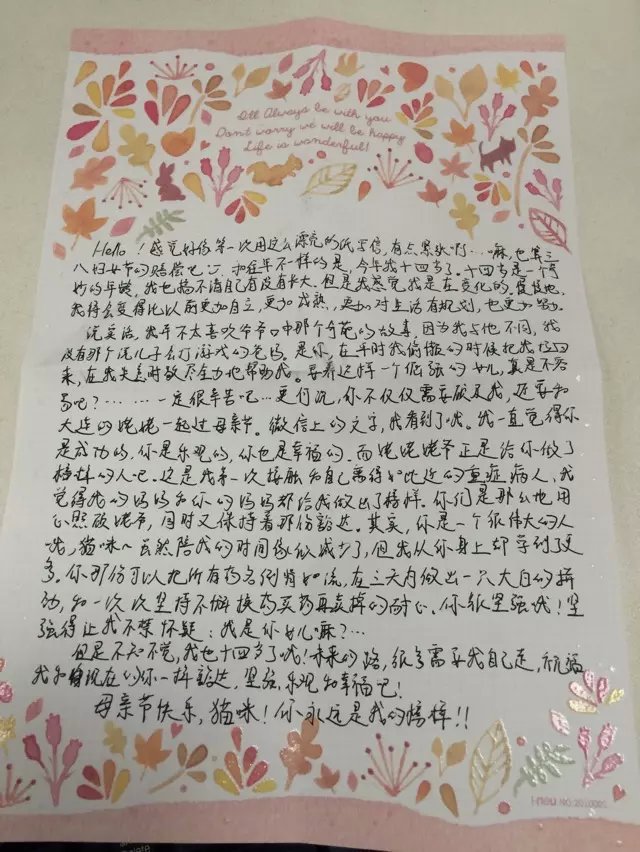 I'll Always be with you
Don't worry we will be happy
Life is wonderful!
Hello！感觉好像第一次用这么漂亮的纸写信，有点紧张啊…嘛，也算三
八妇女节的赔偿吧 和往年不一样的是，今年我十四岁了。十四岁是一个奇
妙的年龄，我也搞不清自己有没有长大。但是我感觉我是在变化的，慢慢地，
我将会变得比以前更加自立，更加成熟，更加对生活有规划，也更加努力
说实话，我并不太喜欢爷爷口中那个奇葩的故事，因为我与他不同，我
没有那个说儿子去打游戏的爸妈。是你，在平时我偷懒的时候把我拉回
来，在我失意时敬尽全力地帮助我。要养这样一个倔强的女儿，真是不容
易吧？……一定很辛苦吧…更何况，你不仅仅需要顾及我，还要和
大连的姥姥一起过母亲节。微信上的文字，我看到了哦。我一直觉得你
是成功的，你是乐观的，你也是幸福的。而姥姥姥爷正是给你做了
榜样的人吧。这是我第一次接触和自己离得如此近的重症病人，我
觉得我的妈妈和你的妈妈都给我做出了榜样。你们是那么地用
心照顾姥爷，同时又保持着那份豁达。其实，你是一个很伟大的人
哦，猫咪～虽然陪我的时间像似减少了，但我从你身上却学到了更
多。你那份可以把所有药名倒背如流，在三天内做出一只大白的行
动，和一次次坚持不懈换药买药再卖掉的耐心。你很坚强哦！坚
强得让我不禁怀疑：我是你女儿嘛？…
但是不知不觉，我也十四岁了哦！未来的路，很多需要我自己走，祝福
我和现在的你一样豁达，坚强，乐观和幸福吧！
母亲节快乐，猫咪！你永远是我的榜样！！